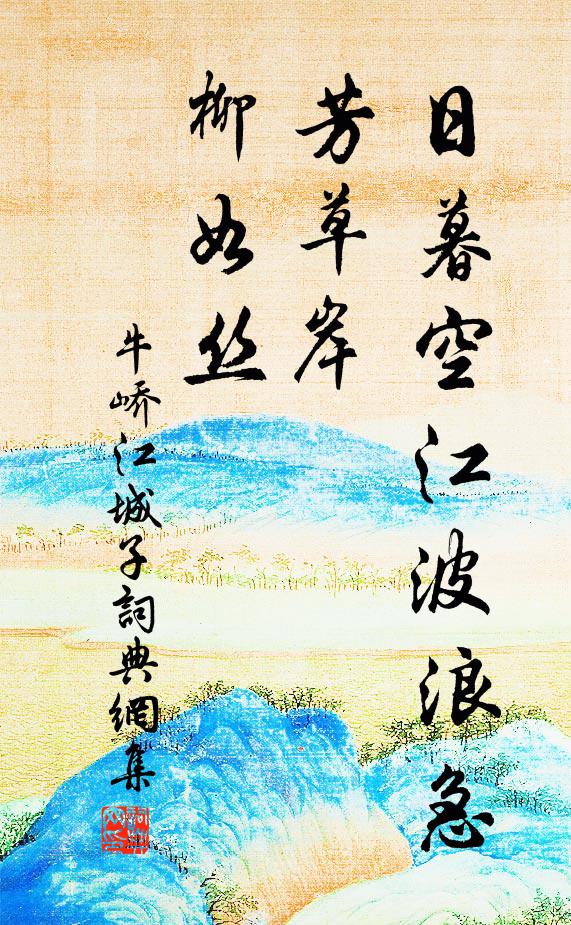 日暮空江波浪急
芳草岸
柳如丝
牛嶠江城子詞典網集